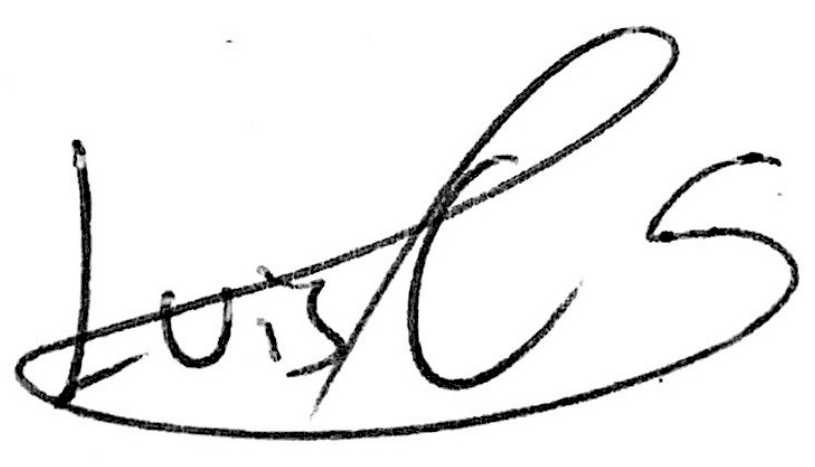 Luis C S